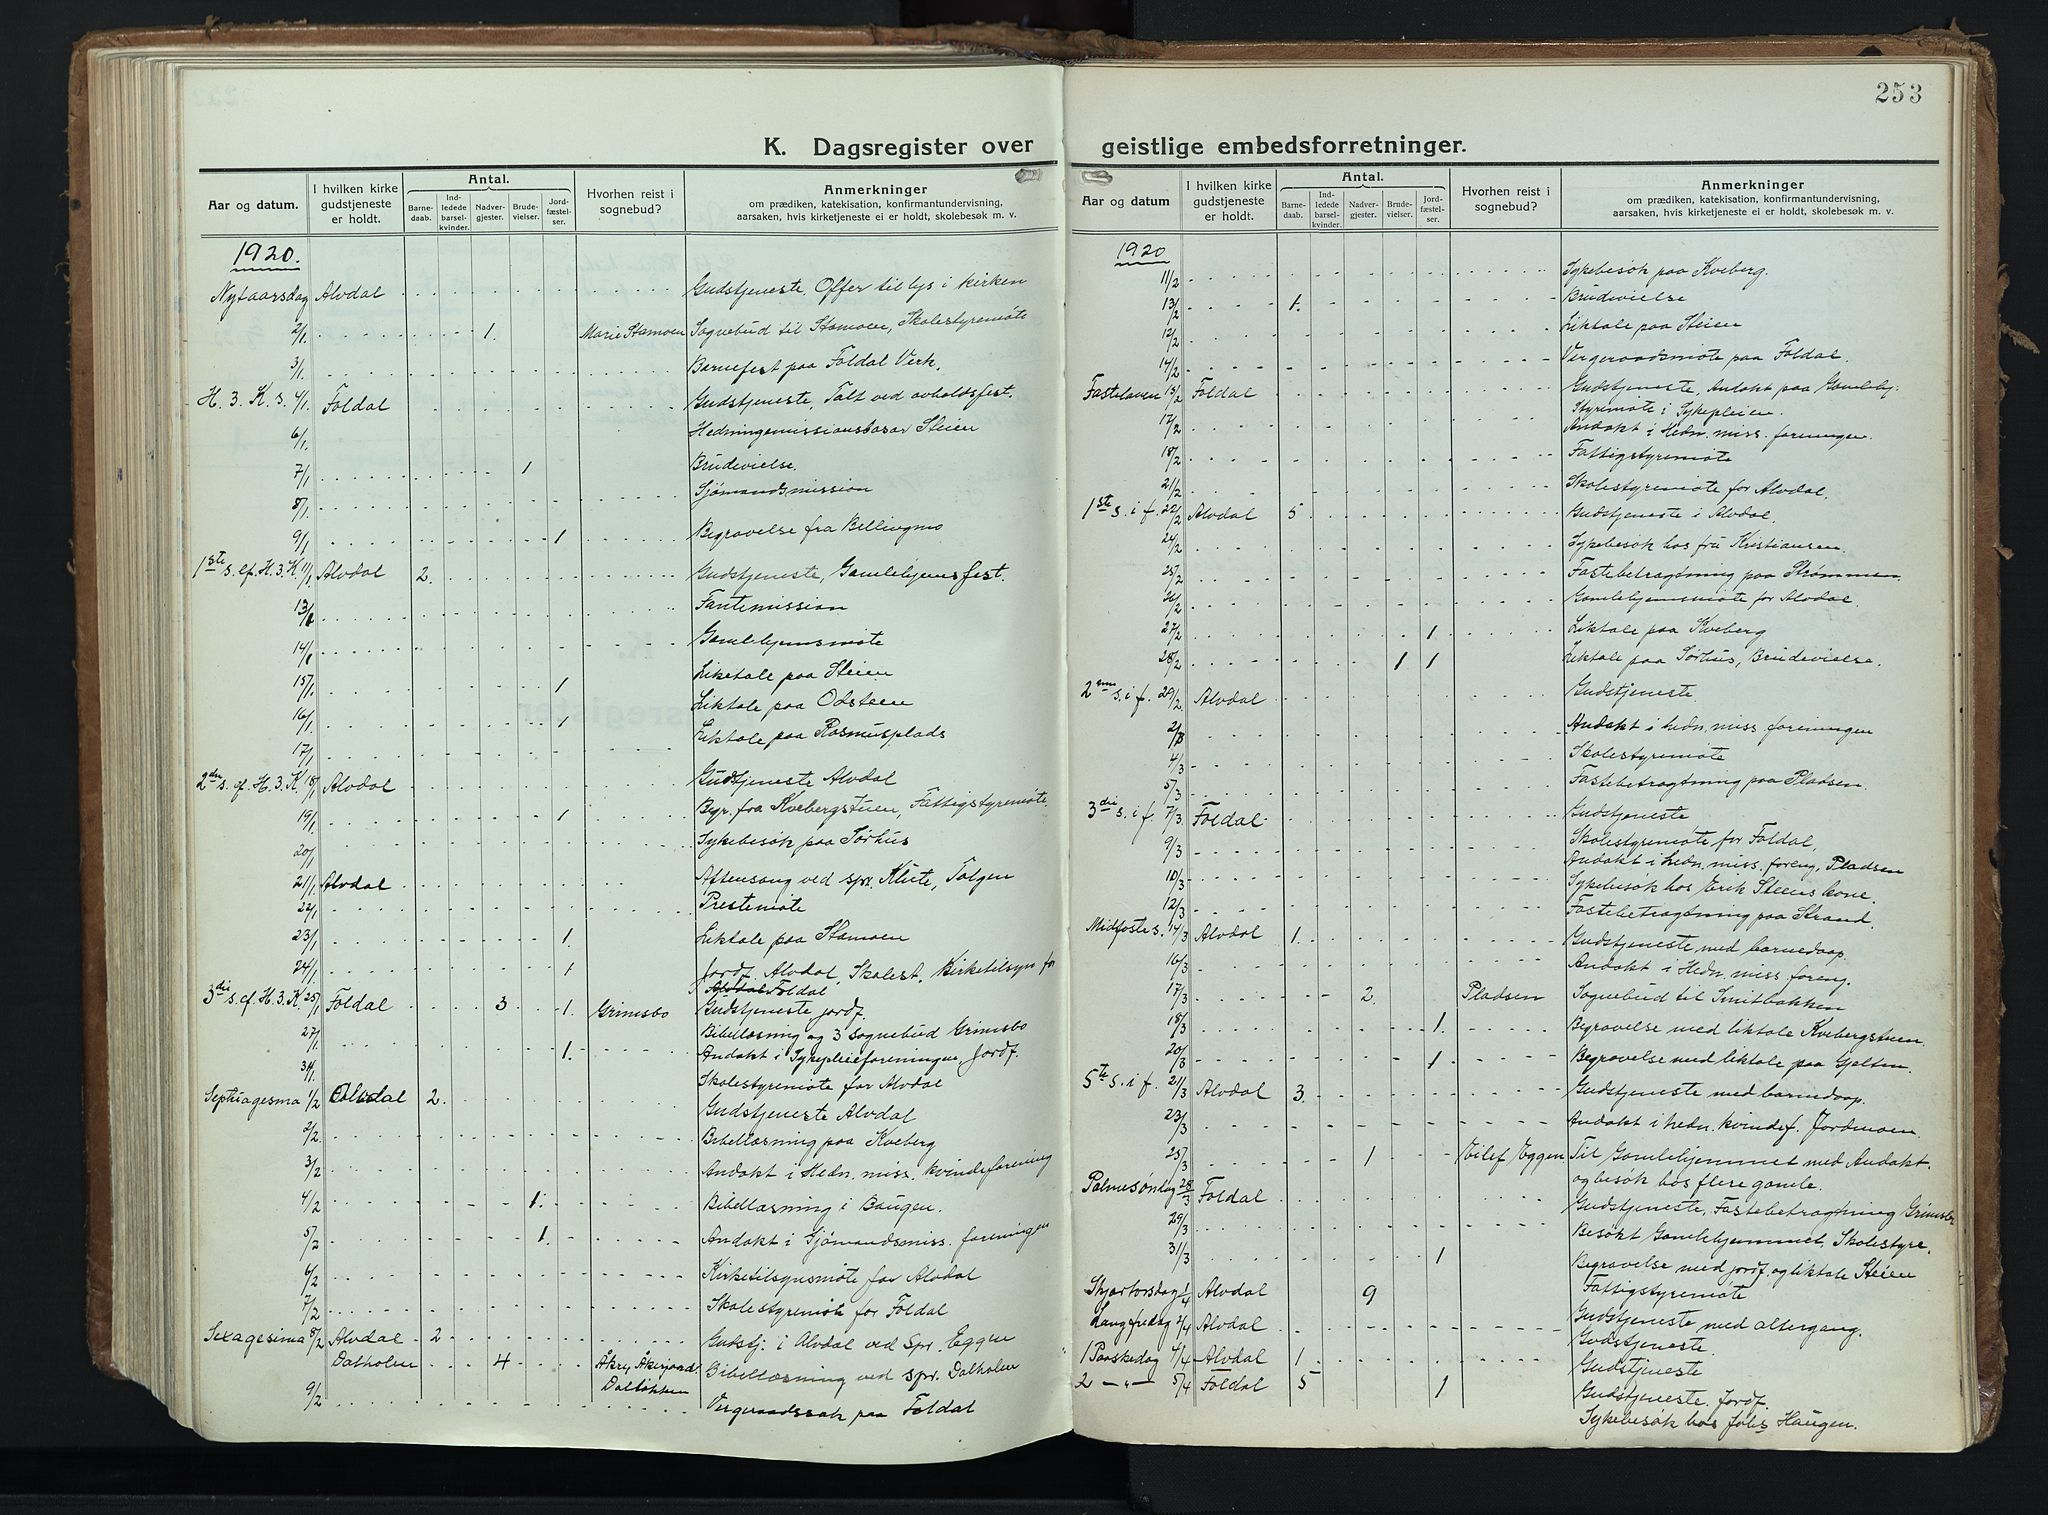 253
K. Dagsregister over geistlige embedsforretninger.
Aar og datum. | I hvilken kirke gudstjeneste er holdt. | Antal. | Barnedaab. | Indledede barselkvinder. | Nadvergjester. | Brudevielser. | Jordfæstelser. | Hvorhen reist i sognebud? | Anmerkninger om prædiken, katekisation, konfirmantundervisning, aarsaken, hvis kirketjeneste ei er holdt, skolebesøk m. v.
1920.
Nytaarsdag Alvdal Gudstjeneste. Offer til lys i kirken
2/1. 1. Marie Stamoen Sognebud til Stamoen, Skolestyremøte
3/1. Barnefest paa Foldal Verk.
H. 3. K. s. 4/1. Foldal Gudstjeneste, Talt ved avholdsfest.
6/1. Hedningemissionsbasar Steien
7/1 1 Brudevielse.
8/1. Sjømandsmission
9/1 1 Begravelse fra Bellingmo
1ste s. ef. H. 3. K. 11/1 Alvdal 2. Gudstjeneste, Gamlehjemsfest.
13/1 Fantemission
14/1 Gamlehjemsmøte
15/1. 1 Liktale paa Steien
16/1 1 Liktale paa Odsteen
17/1 Liktale paa Rasmusplads
2den s. ef. H. 3. K. 18/1 Alvdal Gudstjeneste Alvdal
19/1 1 Begr. fra Kvebergstuen, Fattigstyremøte.
20/1 Sykebesøk paa Sørhus
21/1 Alvdal Aftensang ved spr. Klüte, Tolgen
22/1 Prestemøte
23/1 1. Liktale paa Stamoen
24/1. 1 Jordf. Alvdal, Skolest. Kirketilsyn for
Alvdal Foldal
3die s. ef. H. 3. K. 25/1 Foldal 3 1. Grimsbo Gudstjeneste jordf.
27/1 Bibellæsning og 3 sognebud Grimsbo
31/1. 1. Andakt i Sykepleieforeningen, Jordf.
Skolestyremøte for Alvdal
Septuagesima 1/2 Alvdal 2. Gudstjeneste Alvdal
2/2. Bibellæsning paa Kveberg
3/2 Andakt i Hedn. miss. kvindeforening
4/2 1. Bibellæsning i Baugen.
5/2 1. Andakt i Sjømandsmiss. foreningen
6/2 Kirketilsynsmøte for Alvdal
7/2 Skolestyremøte for Foldal
Sexagesima 8/2 Alvdal 2 Gudstj. i Alvdal ved Spr. Eggen
Dalholen 4 Åkre, Åkerjordet Bibellæsning ved spr. Dalholen
Dalbakken
9/2 Vergeraadssak paa Foldal
Aar og datum | I hvilken kirke gudstjeneste er holdt. | Antal. | Barnedaab. | Indledede barselkvinder. | Nadvergjester. | Brudevielser. | Jordfæstelser. | Hvorhen reist i sognebud? | Anmerkninger om prædiken, katekisation, konfirmantundervisning, aarsaken, hvis kirketjeneste ei er holdt, skolebesøk m. v.
1920
11/2 Sykebesøk paa Kveberg.
13/2 1. Brudevielse
12/2 Liktale paa Steien
14/2 Vergeraadsmøte paa Foldal.
Fastelaven 15/2 Foldal Gudstjeneste, Andakt paa Gamlehj.
Styremøte i Sykepleien.
17/2 Andakt i Hedn. miss. foreningen.
18/2 Fattigstyremøte
21/2 Skolestyremøte for Alvdal.
1ste s. i f. 22/2 Alvdal 5 Gudstjeneste i Alvdal.
24/2 Sykebesøk hos fru Kristiansen.
25/2 Fastebetragtning paa Strømmen
26/2 Gamlehjemsmøte for Alvdal.
27/2 1 Liktale paa Kveberg
28/2 1 1 Liktale paa Sørhus, Brudevielse.
2nn s. i f. 29/2 Alvdal Gudstjeneste
2/3 Andakt i hedn. miss. foreningen
4/3 Skolestyremøte
5/3 Fastebetragtning paa Pladsen.
3die s. i f. 7/3. Foldal Gudstjeneste
Skolestyremøte for Foldal,
9/3 Andakt i hedn. miss. foreng. Pladsen
10/3 Sykebesøk hos Erik Steens kone.
12/3 Fastebetragtning paa Strand.
Midfaste s. 14/3 Alvdal 1. Gudstjeneste med barnedaap.
16/3 Andakt i Hedn. miss. foreng.
17/3 2. Pladsen Sognebud til Smitbakken
18/3 1. Begravelse med liktale Kvebergstuen.
20/3 1 Begravelse med liktale paa Gjelten.
5te s. i f. 21/3 Alvdal 3. Gudstjeneste med barnedaap.
23/3 Andakt i hedn. kvindef. Jordmoen.
25/3 1 Eilef Eggen Til Gamlehjemmet med Andakt.
og besøk hos flere gamle.
Palmesøndag 28/3 Foldal Gudstjeneste, Fastebetragtning Grimsbo
29/3 Besøkt Gamlehjemmet, Skolestyre.
31/3 1 Begravelse med jordf. og liktale Steien
Fattigstyremøte
Skjærtorsdag 1/4 Alvdal 9 Gudstjeneste med altergang.
Langfredag 2/4 Alvdal Gudstjeneste.
1 Paaskedag 4/4 Alvdal 1 Gudstjeneste
2 — " — 5/4 Foldal 5 1 Gudstjeneste. Jordf.
Sykebesøk hos Johs Haugen.